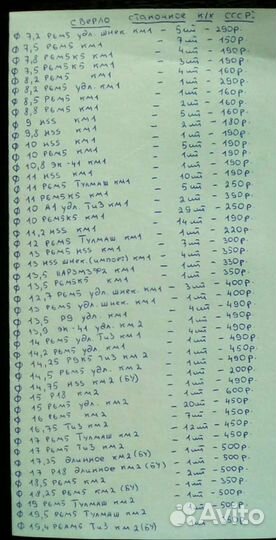 СВЕРЛО СТАНОЧНОЕ К/Х СССР:
Ф 7,2 Р6М5 удл. шнек КМ1 - 5шт - 290р.
Ф 7,5 Р6М5 КМ1 - 7шт - 150р.
Ф 7,8 Р6М5К5 КМ1 - 4шт - 190р.
Ф 7,5 Р6М5К5 КМ1 - 1шт - 190р.
Ф 8,2 Р6М5 КМ1 - 3шт - 160р.
Ф 8,2 Р6М5 удл. КМ1 - 4шт - 160р.
Ф 8,5 Р6М5 КМ1 - 1шт
Ф 8,8 Р6М5 КМ1 - 2шт - 160р.
Ф 9 HSS КМ1 - 5шт - 160р.
Ф 9,8 HSS КМ1 - 2шт - 180р.
Ф 10 HSS КМ1 - 1шт - 190р.
Ф 10 Р6М5 КМ1 - 5шт - 190р.
Ф 10,8 ЭК-41 КМ1 - 1шт - 190р.
Ф 11 HSS КМ1 - 1шт - 190р.
Ф 11 Р6М5 Тулмаш КМ1 - 10шт - 190р.
Ф 11 Р6М5К5 КМ1 - 5шт - 250р.
Ф 10 А1 удл. ТиЗ КМ1 - 2шт - 350р.
Ф 10 Р6М5К5 КМ1 - 29шт - 250р.
Ф 11,2 HSS КМ1 - 14шт - 190р.
Ф 12 Р6М5 Тулмаш КМ1 - 1шт - 220р.
Ф 13 Р6М5 HSS КМ1 - 7шт - 300р.
Ф 13 HSS шнек.(импорт) КМ1 - 4шт - 350р.
Ф 13,5 КМ1 - 1шт - 350р.
Ф 13,5 Р6М5К5 КМ1 - 1шт - 350р.
Ф 12,7 Р6М5 удл. шнек КМ1 - 3шт - 400р.
Ф 13 Р6М5 удл. шнек. КМ1 - 1шт - 400р.
Ф 13,5 Р9 удл. КМ1 - 4шт - 490р.
Ф 13,9 ЭК-41 удл. КМ2 - 1шт - 490р.
Ф 14 Р6М5 удл. ТиЗ КМ1 - 4шт - 490р.
Ф 14,2 Р6М5 удл. КМ1 - 1шт - 490р.
Ф 14,25 Р9К5 ТиЗ КМ2 - 1шт - 490р.
Ф 14,5 Р6М5 удл. КМ2 - 1шт - 200р.
Ф 14,75 HSS КМ2 (БУ) - 1шт - 490р.
Ф 15 Р18 КМ2 - 1шт - 600р.
Ф 15 Р6М5 удл. КМ2 - 20шт - 450р.
Ф 16 Р6М5 КМ2 - 7шт - 450р.
Ф 16,75 ТиЗ КМ2 - 12шт - 450р.
Ф 17 Р6М5 Тулмаш КМ2 - 1шт - 450р.
Ф 17 Р6М5 ТиЗ КМ2 - 1шт - 450р.
Ф 17,35 длинное КМ2 (БУ) - 2шт - 500р.
Ф 17 Р18 длинное КМ2 (БУ) - 1шт - 500р.
Ф 18,5 Р6М5 КМ2 - 2шт - 500р.
Ф 18,25 Р6М5 КМ2 (БУ) - 1шт - 350р.
Ф 19 Р6М5 Тулмаш КМ2 - 1шт - 500р.
Ф 19,5 Р6М5 Тулмаш КМ2
Ф 19,4 Р6АМ5 ТиЗ КМ2 (БУ) - 500р.
Avito